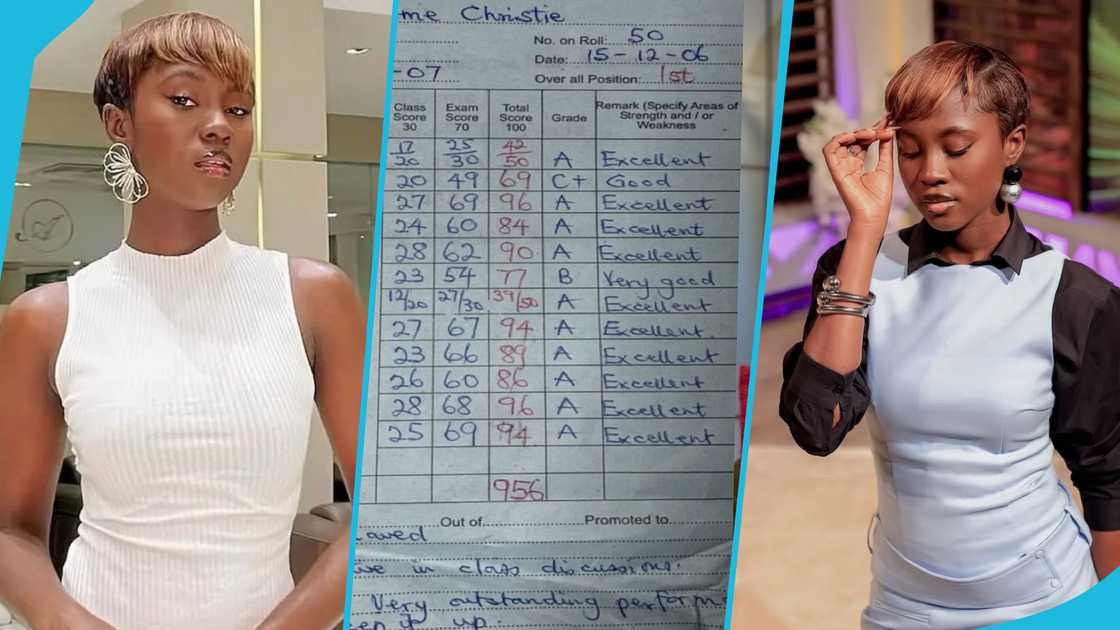 me Christie
No. on Roll: 50
Date: 15-12-06
-07
Over all Position: 1st
Class Score 30 Exam Score 70 Total Score 100 Grade Remark (Specify Areas of Strength and / or Weakness
17/20 25/30 42/50 A Excellent
20 49 69 C+ Good
27 69 96 A Excellent
24 60 84 A Excellent
28 62 90 A Excellent
23 54 77 B Very good
12/20 27/30 39/50 A Excellent
27 67 94 A Excellent.
23 66 89 A Excellent
26 60 86 A Excellent
28 68 96 A Excellent
25 69 94 A Excellent
956
Out of Promoted to
aved
ive in class discussions.
Very outstanding perform
up.